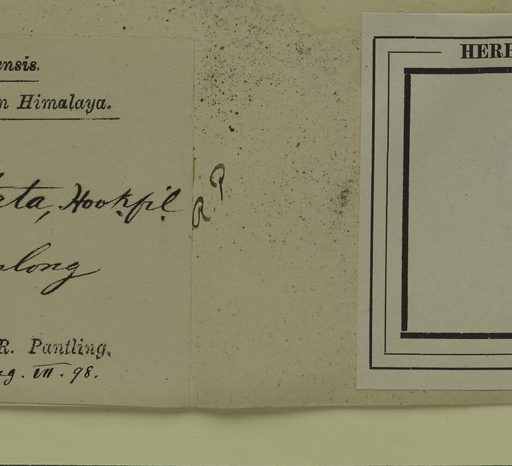 ensis.
n Himalaya.
eta, Hook.fil
R.P
long
R. Pantling.
g. VII. 98.
HERB